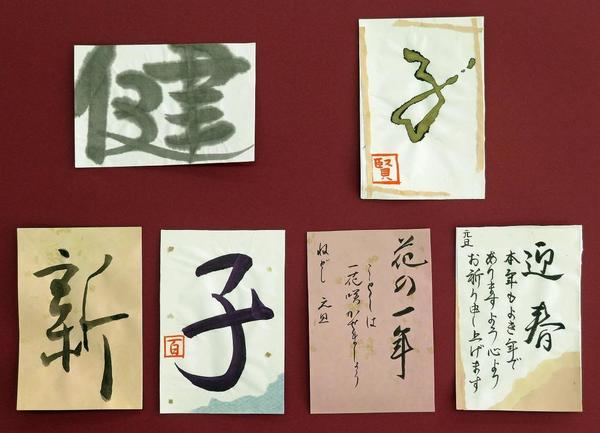 健
子
賢
新
子
百
花の一年
ことしは
一花咲かせましょう
ねどし 元旦
迎春
本年もよき年で
ありますよう心より
お祈り申し上げます
元旦